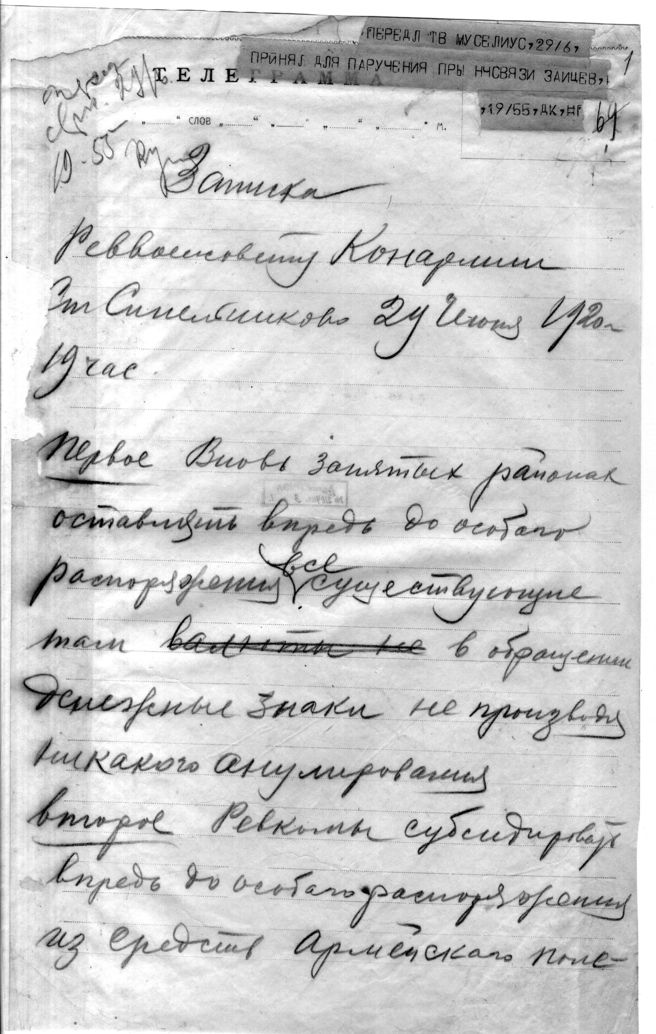 ПЕРЕДАЛ ТВ МУСЕЛИУС,29/6,
ПРИНЯЛ ДЛЯ ПАРУЧЕНИЯ ПРЫ НЧСВЯЗИ ЗАЙЦЕВ,
,19/55,ДК,НР
1
64
ТЕЛЕГРАММА
19-55
„ “ СЛОВ „ “ „ “ „ “ м.
Записка
Реввоенсовету Конармии
Ст Синельниково 29 Июня 1920 г
19 час
Первое Вновь занятых районах
оставлять впредь до особаго
распоряжения все существующие
там валюты не в обращении
денежные знаки не производя
никакого анулирования
второе Ревкомы субсидировать
впредь до особаго распоряжения
из средств Армейского поле-